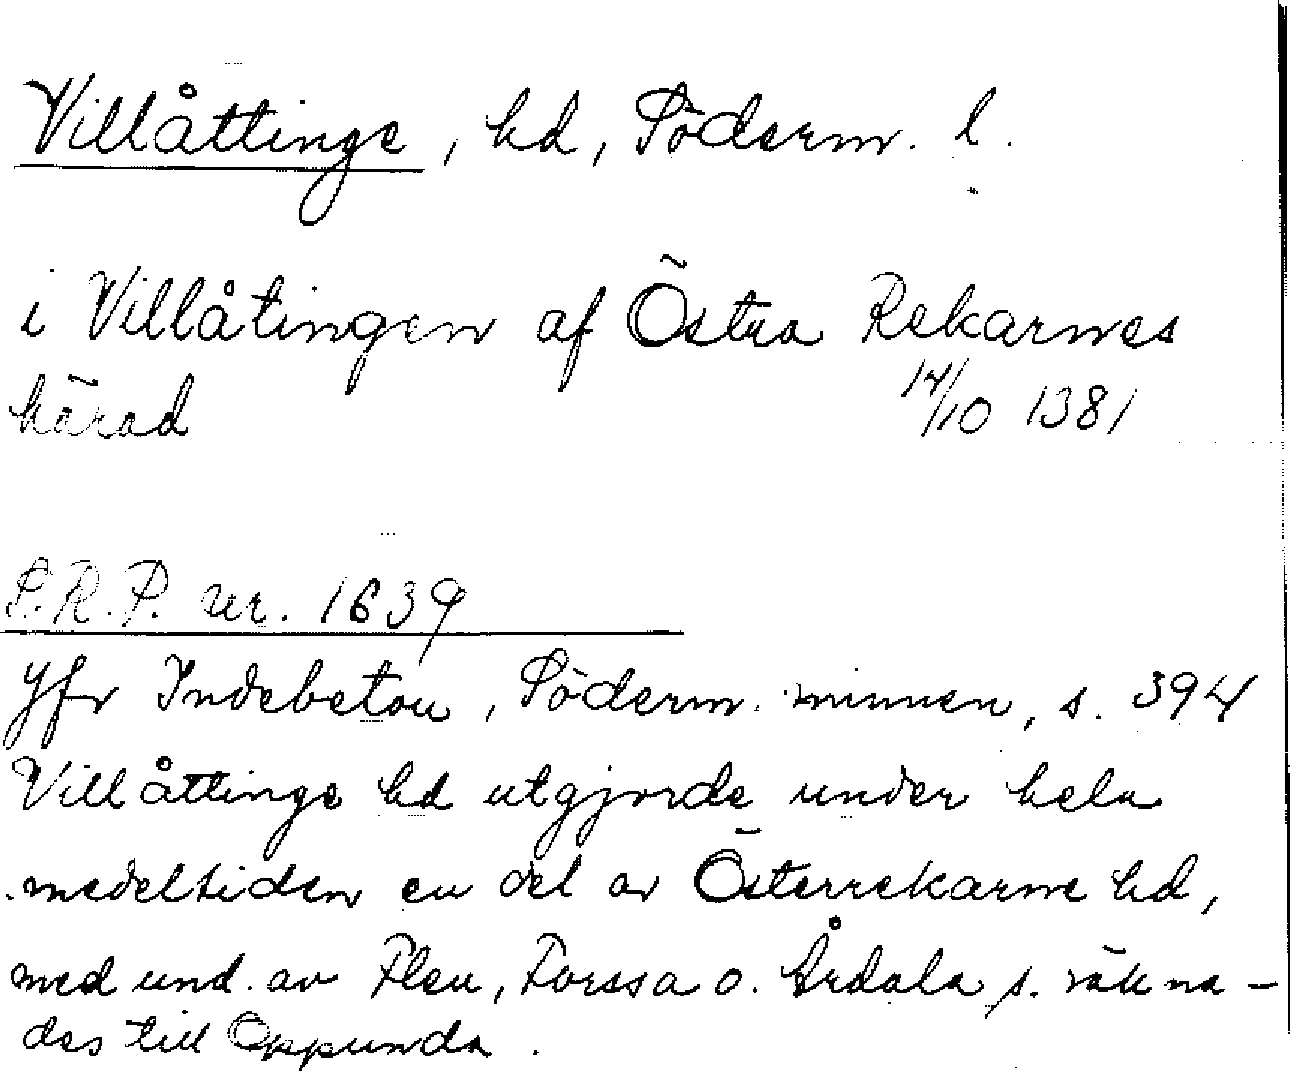 Villåttinge, hd, Söderm. l.
i Villåtingen af Östra Rekarnes
härad 14/10 1381
S.R.P. nr. 1639
Jfr Indebetou, Söderm. minnen, s. 394
Villåttinge hd utgjorde under hela
medeltiden en del av Österrekarne hd,
med und. av Flen, Forssa o. Årdala s. räkna-
des till Oppunda.